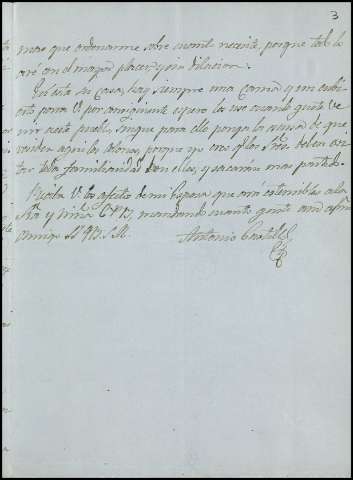 3
mas que ordenarme sobre cuanto necesite, porque todo lo
aré con el mayor placer y sin dilacion.
En esta su casa, hay siempre una cama y un cubi-
erto para V. por consiguiente espero la use cuando guste ve-
nir a este pueblo, sin que para ello ponga la escusa de que
vender aqui los colonos, porque yo creo q. los Sres. deben evi-
tar toda familiaridad con ellos, y sacarán mas partido.
Reciba V. los afectos de mi Esposa que ará estensibles a la
Sra. y niña C.P.B., mandando cuanto guste a su afmo.
amigo SS. Q.B.S.M.
Antonio Castill